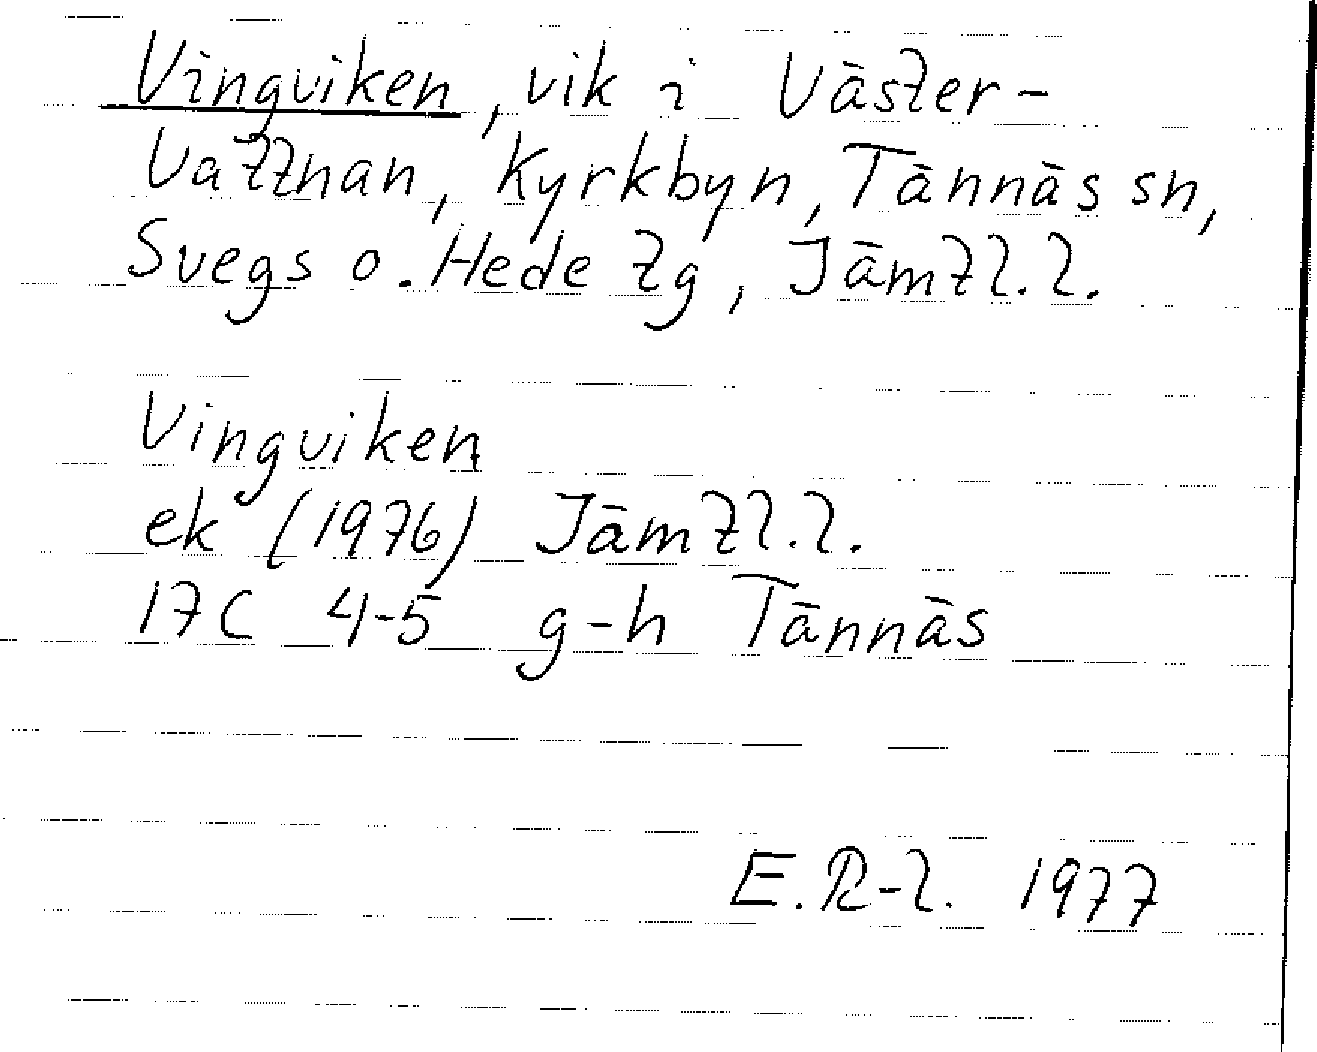 Vingviken, vik i Väster-
Vattnan, Kyrkbyn, Tännäs sn,
Svegs o. Hede tg, Jämtl. l.
Vingviken
ek (1976) Jämtl. l.
17C 4-5 g-h Tännäs
E. R-l. 1977